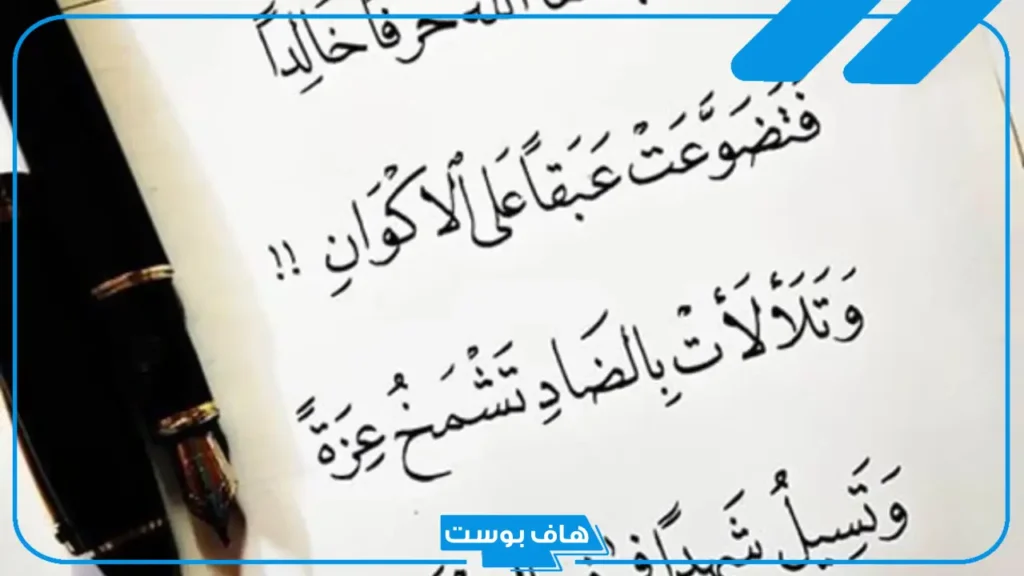 الله حرفاً خَالِداً
فَتَضَوَّعَتْ عَبَقاً عَلَى ٱلْاَكْوَانِ !!
وَتَلَأْلَأَتْ بِالضَادِ تَشْمَخُ عِزَةً
وَتَسِيلُ شَهْداً
هاف بوست